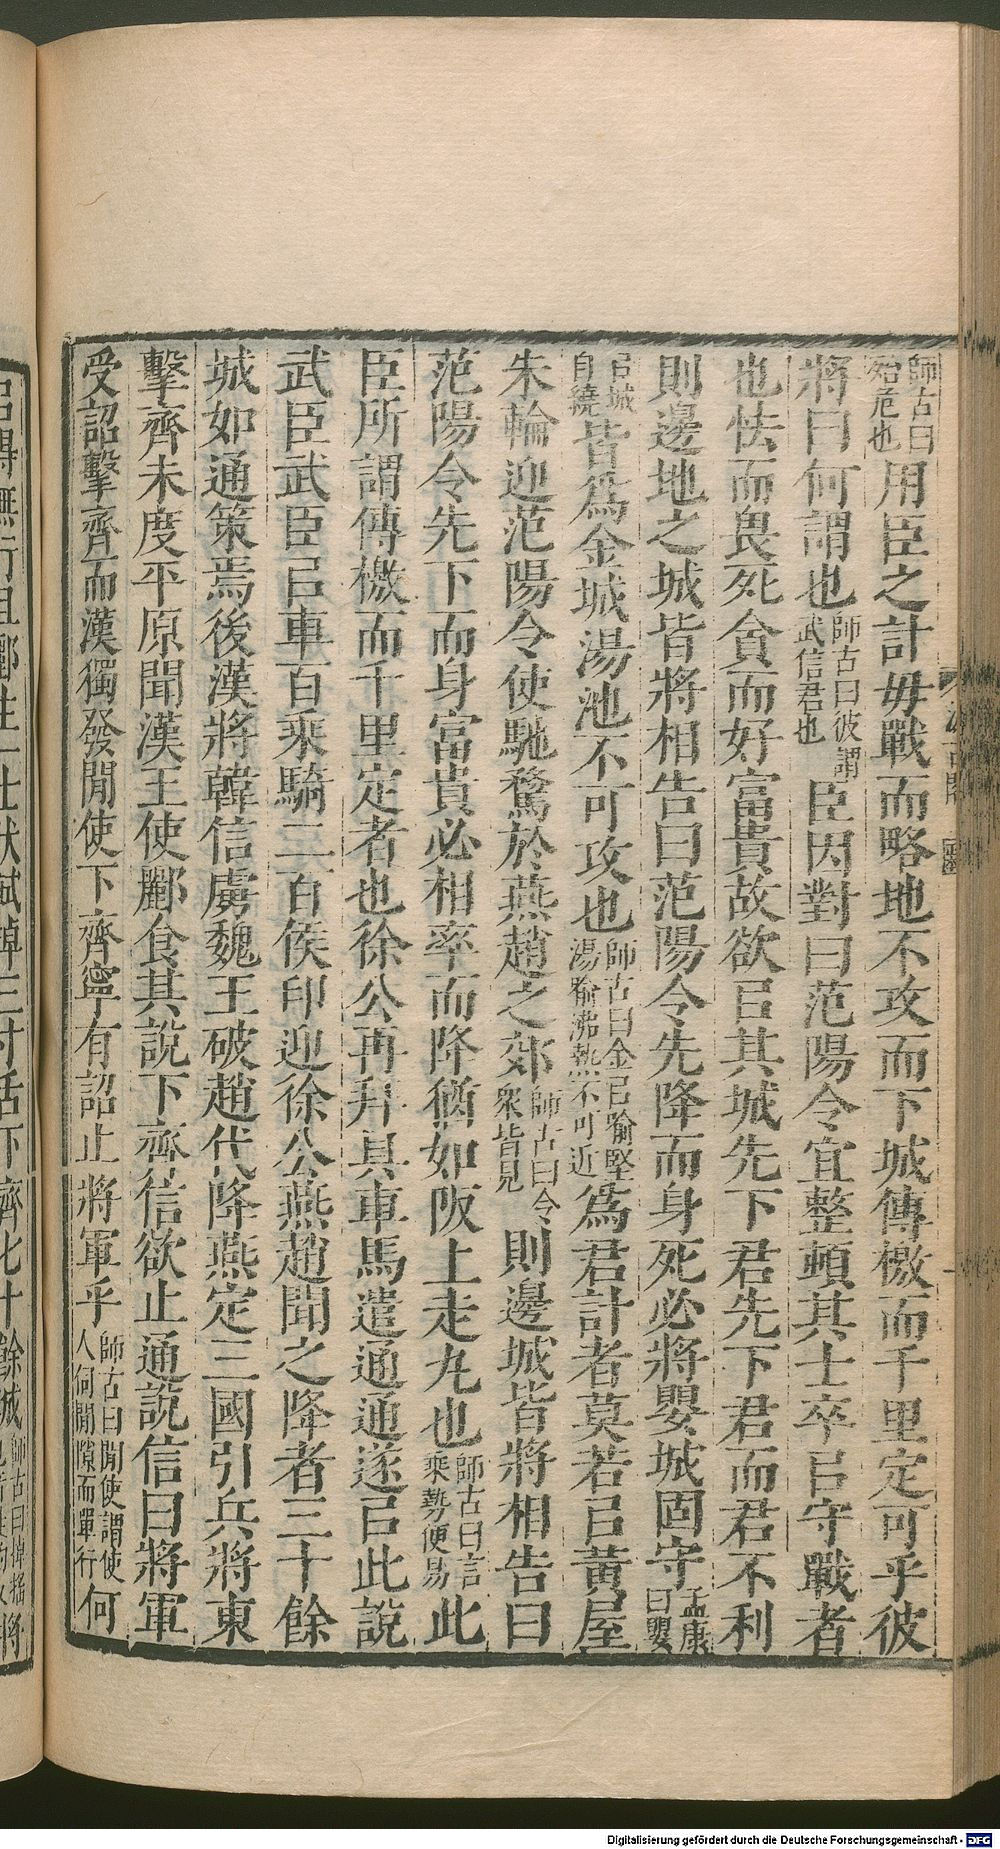 師古曰殆危也用臣之計毋戰而略地不攻而下城傳檄而千里定可乎彼
將曰何謂也師古曰彼謂武信君也臣因對曰范陽令宜整頓其士卒㠯守戰者
也怯而畏死貪而好富貴故欲㠯其城先下君先下君而君不利
則邊地之城皆將相告曰范陽令先降而身死必將嬰城固守孟康曰嬰
㠯城自繞皆爲金城湯池不可攻也師古曰金㠯喻堅湯喻沸熱不可近爲君計者莫若㠯黃屋
朱輪迎范陽令使馳騖於燕趙之郊師古曰令衆皆見則邊城皆將相告曰
范陽令先下而身富貴必相率而降猶如阪上走丸也師古曰言乘勢便易此
臣所謂傳檄而千里定者也徐公再拜具車馬遣通通遂㠯此說
武臣武臣㠯車百乘騎二百侯印迎徐公燕趙聞之降者三十餘
城如通策焉後漢將韓信虜魏王破趙代降燕定三國引兵將東
擊齊未度平原聞漢王使酈食其說下齊信欲止通說信曰將軍
受詔擊齊而漢獨發閒使下齊寧有詔止將軍乎師古曰閒使謂使人伺閒隙而單行何